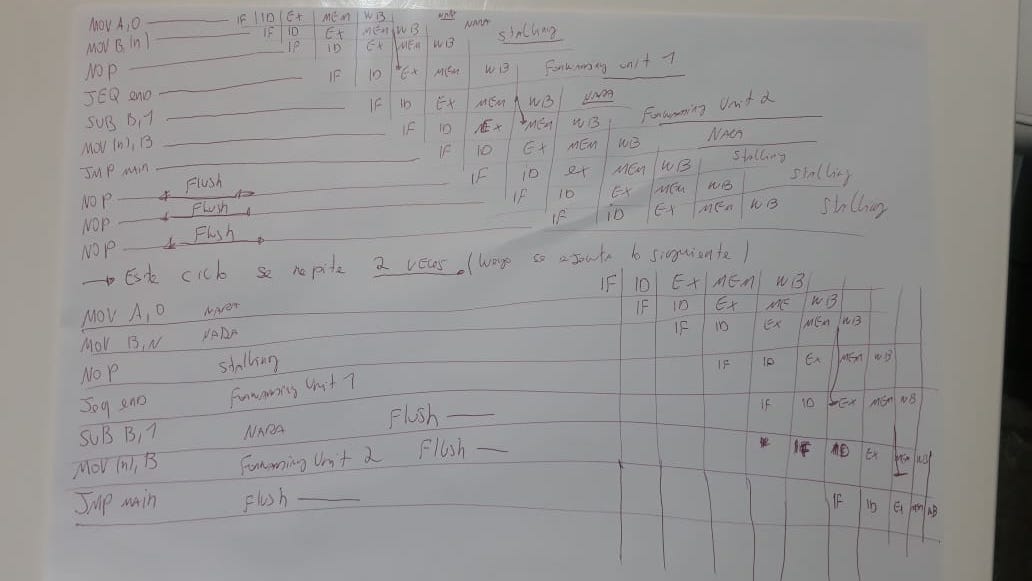 MOV A,0 IF ID EX MEM WB NADA
MOV B,(n) IF ID EX MEM WB NADA
NOP IF ID EX MEM WB Stalling
JEQ end IF ID EX MEM WB Forwarding unit 1
SUB B,1 IF ID EX MEM WB NADA
MOV (n),B IF ID EX MEM WB Forwarding Unit 2
JMP main IF ID EX MEM WB NADA
NOP Flush IF ID EX MEM WB Stalling
NOP Flush IF ID EX MEM WB Stalling
NOP Flush IF ID EX MEM WB Stalling
→ Este ciclo se repite 2 veces. (luego se ejecuta lo siguiente)
MOV A,0 NADA IF ID EX MEM WB
MOV B,N NADA IF ID EX ME WB
NOP Stalling IF ID EX MEM WB
Jeq end Forwarding Unit 1 IF ID EX MEM WB
SUB B,1 NADA Flush IF ID EX MEM WB
MOV (n),B Forwarding Unit 2 Flush IF ID EX MEM WB
JMP main Flush IF ID EX MEM WB